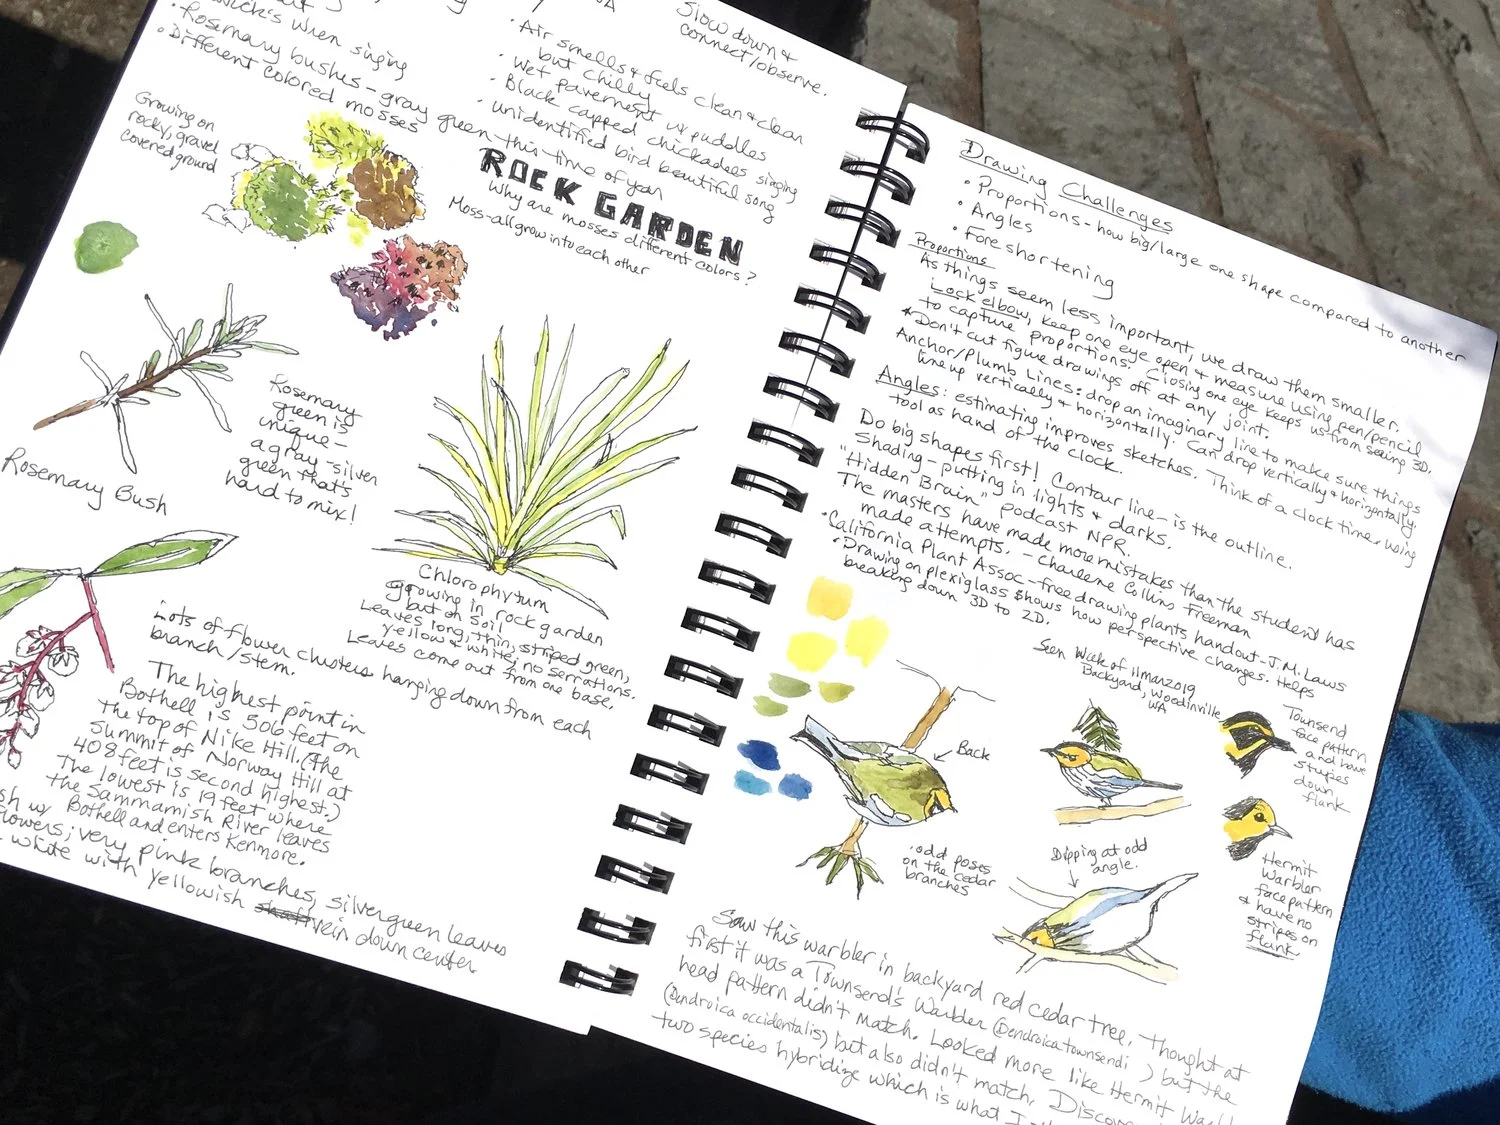 wick's wren singing
• Rosemary bushes - gray green this time of year
• Different colored mosses
Growing on
rocky, gravel
covered ground
• Air smells & feels clean & clean
but chilly
• Wet pavement w/ puddles
• Black capped chickadees singing
• unidentified bird beautiful song
Slow down &
connect/observe.
ROCK GARDEN
Why are mosses different colors?
Moss - all grow into each other
Rosemary
green is
unique -
a gray-silver
green that's
hard to mix!
Rosemary Bush
Chlorophytum
growing in rock garden
but on soil
Leaves long, thin, striped green,
yellow & white; no serrations.
Leaves come out from one base.
Lots of flower clusters hanging down from each
branch/stem.
The highest point in
Bothell is 506 feet on
the top of Nike Hill. (The
summit of Norway Hill at
408 feet is second highest.)
The lowest is 19 feet where
the Sammamish River leaves
Bothell and enters Kenmore.
sh w/
flowers; very pink branches, silvergreen leaves
white with yellowish vein down center
Drawing Challenges
• Proportions - how big/large one shape compared to another
• Angles
• Fore shortening
Proportions
As things seem less important, we draw them smaller.
Lock elbow, keep one eye open & measure using pen/pencil
to capture proportions. Closing one eye keeps us from seeing 3D.
*Don't cut figure drawings off at any joint.
Anchor/Plumb Lines: drop an imaginary line to make sure things
line up vertically & horizontally. Can drop vertically & horizontally.
Angles: estimating improves sketches. Think of a clock time using
tool as hand of the clock.
Do big shapes first! Contour line - is the outline.
Shading - putting in lights & darks.
"Hidden Brain" podcast NPR.
The masters have made more mistakes than the student has
made attempts. - Charlene Collins Freeman
• California Plant Assoc - free drawing plants handout - J.M. Laws
• Drawing on plexiglass shows how perspective changes. Helps
breaking down 3D to 2D.
Seen Week of 11 Mar 2019
Backyard, Woodinville
WA
Back
• odd poses
on the cedar
branches
Dipping at odd
angle.
Townsend
face pattern
and have
stripes
down
flank
Hermit
Warbler
face pattern
& have no
stripes on
flank
Saw this warbler in backyard red cedar tree. Thought at
first it was a Townsend's Warbler (Dendroica townsendi) but the
head pattern didn't match. Looked more like Hermit
(Dendroica occidentalis) but also didn't match.
two species hybridize which is what I